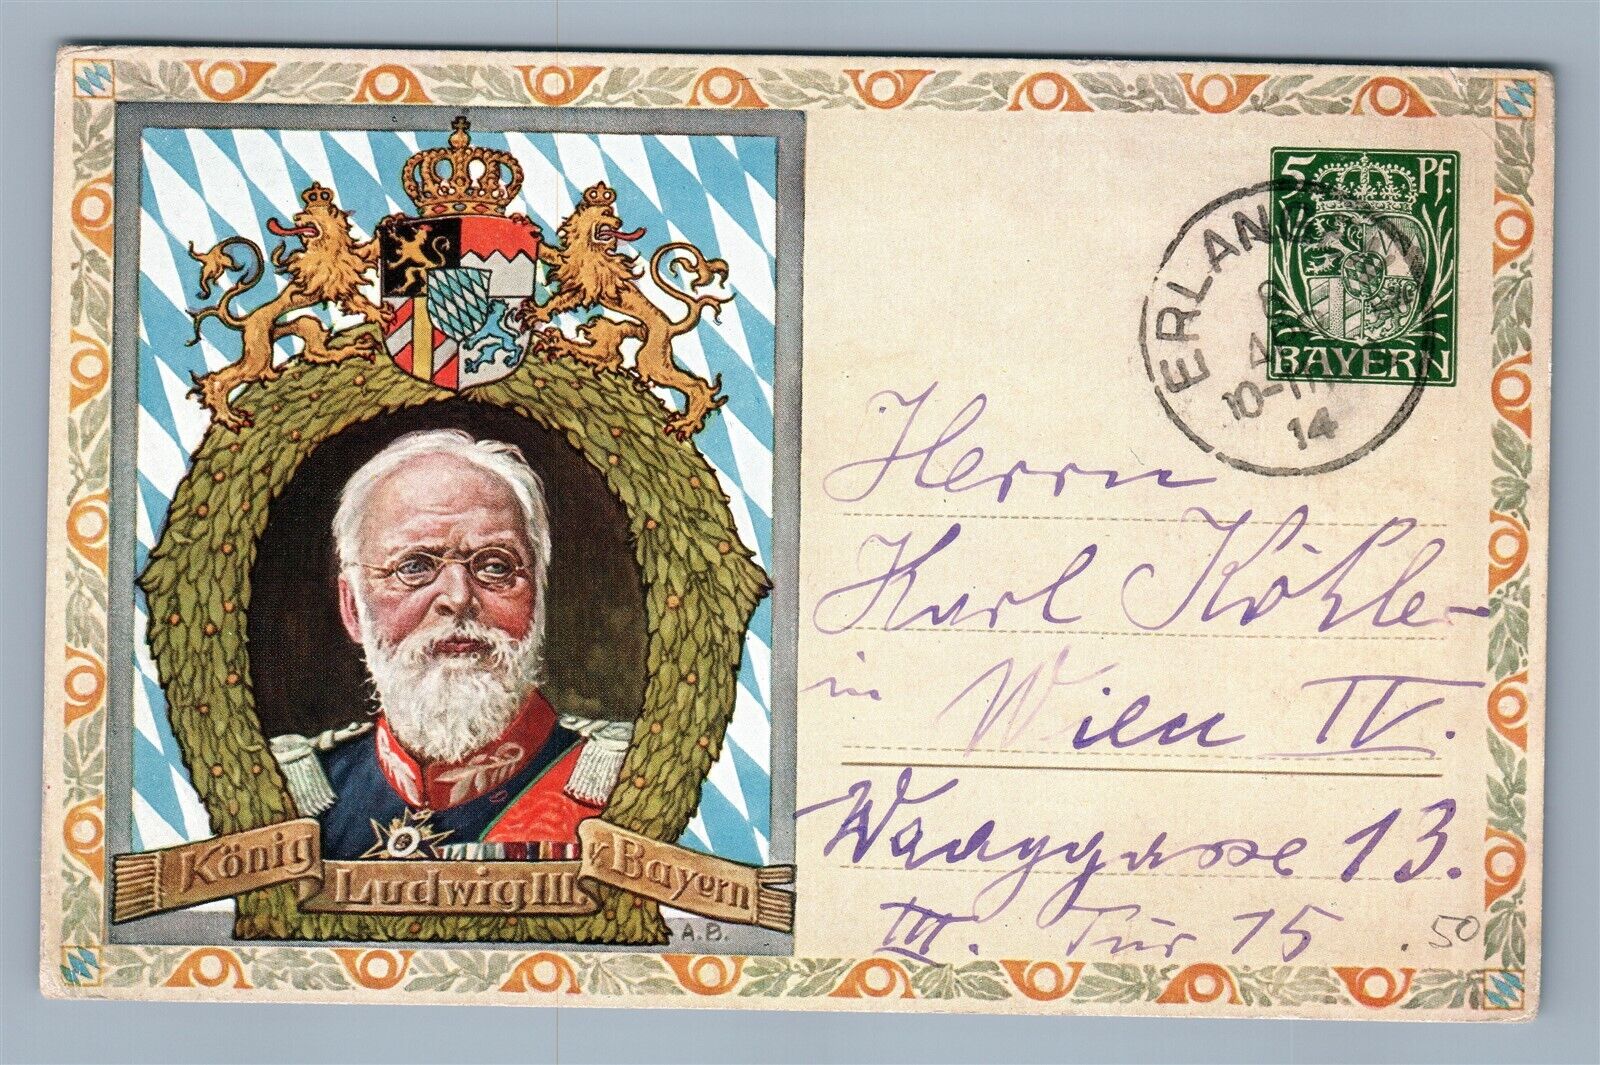 König Ludwig III. v. Bayern
A.B.
5 Pf.
BAYERN
ERLANG
4
10-11
14
Herrn
Karl Köhler
in Wien IV.
Waaggasse 13.
III. Tür 15
.50